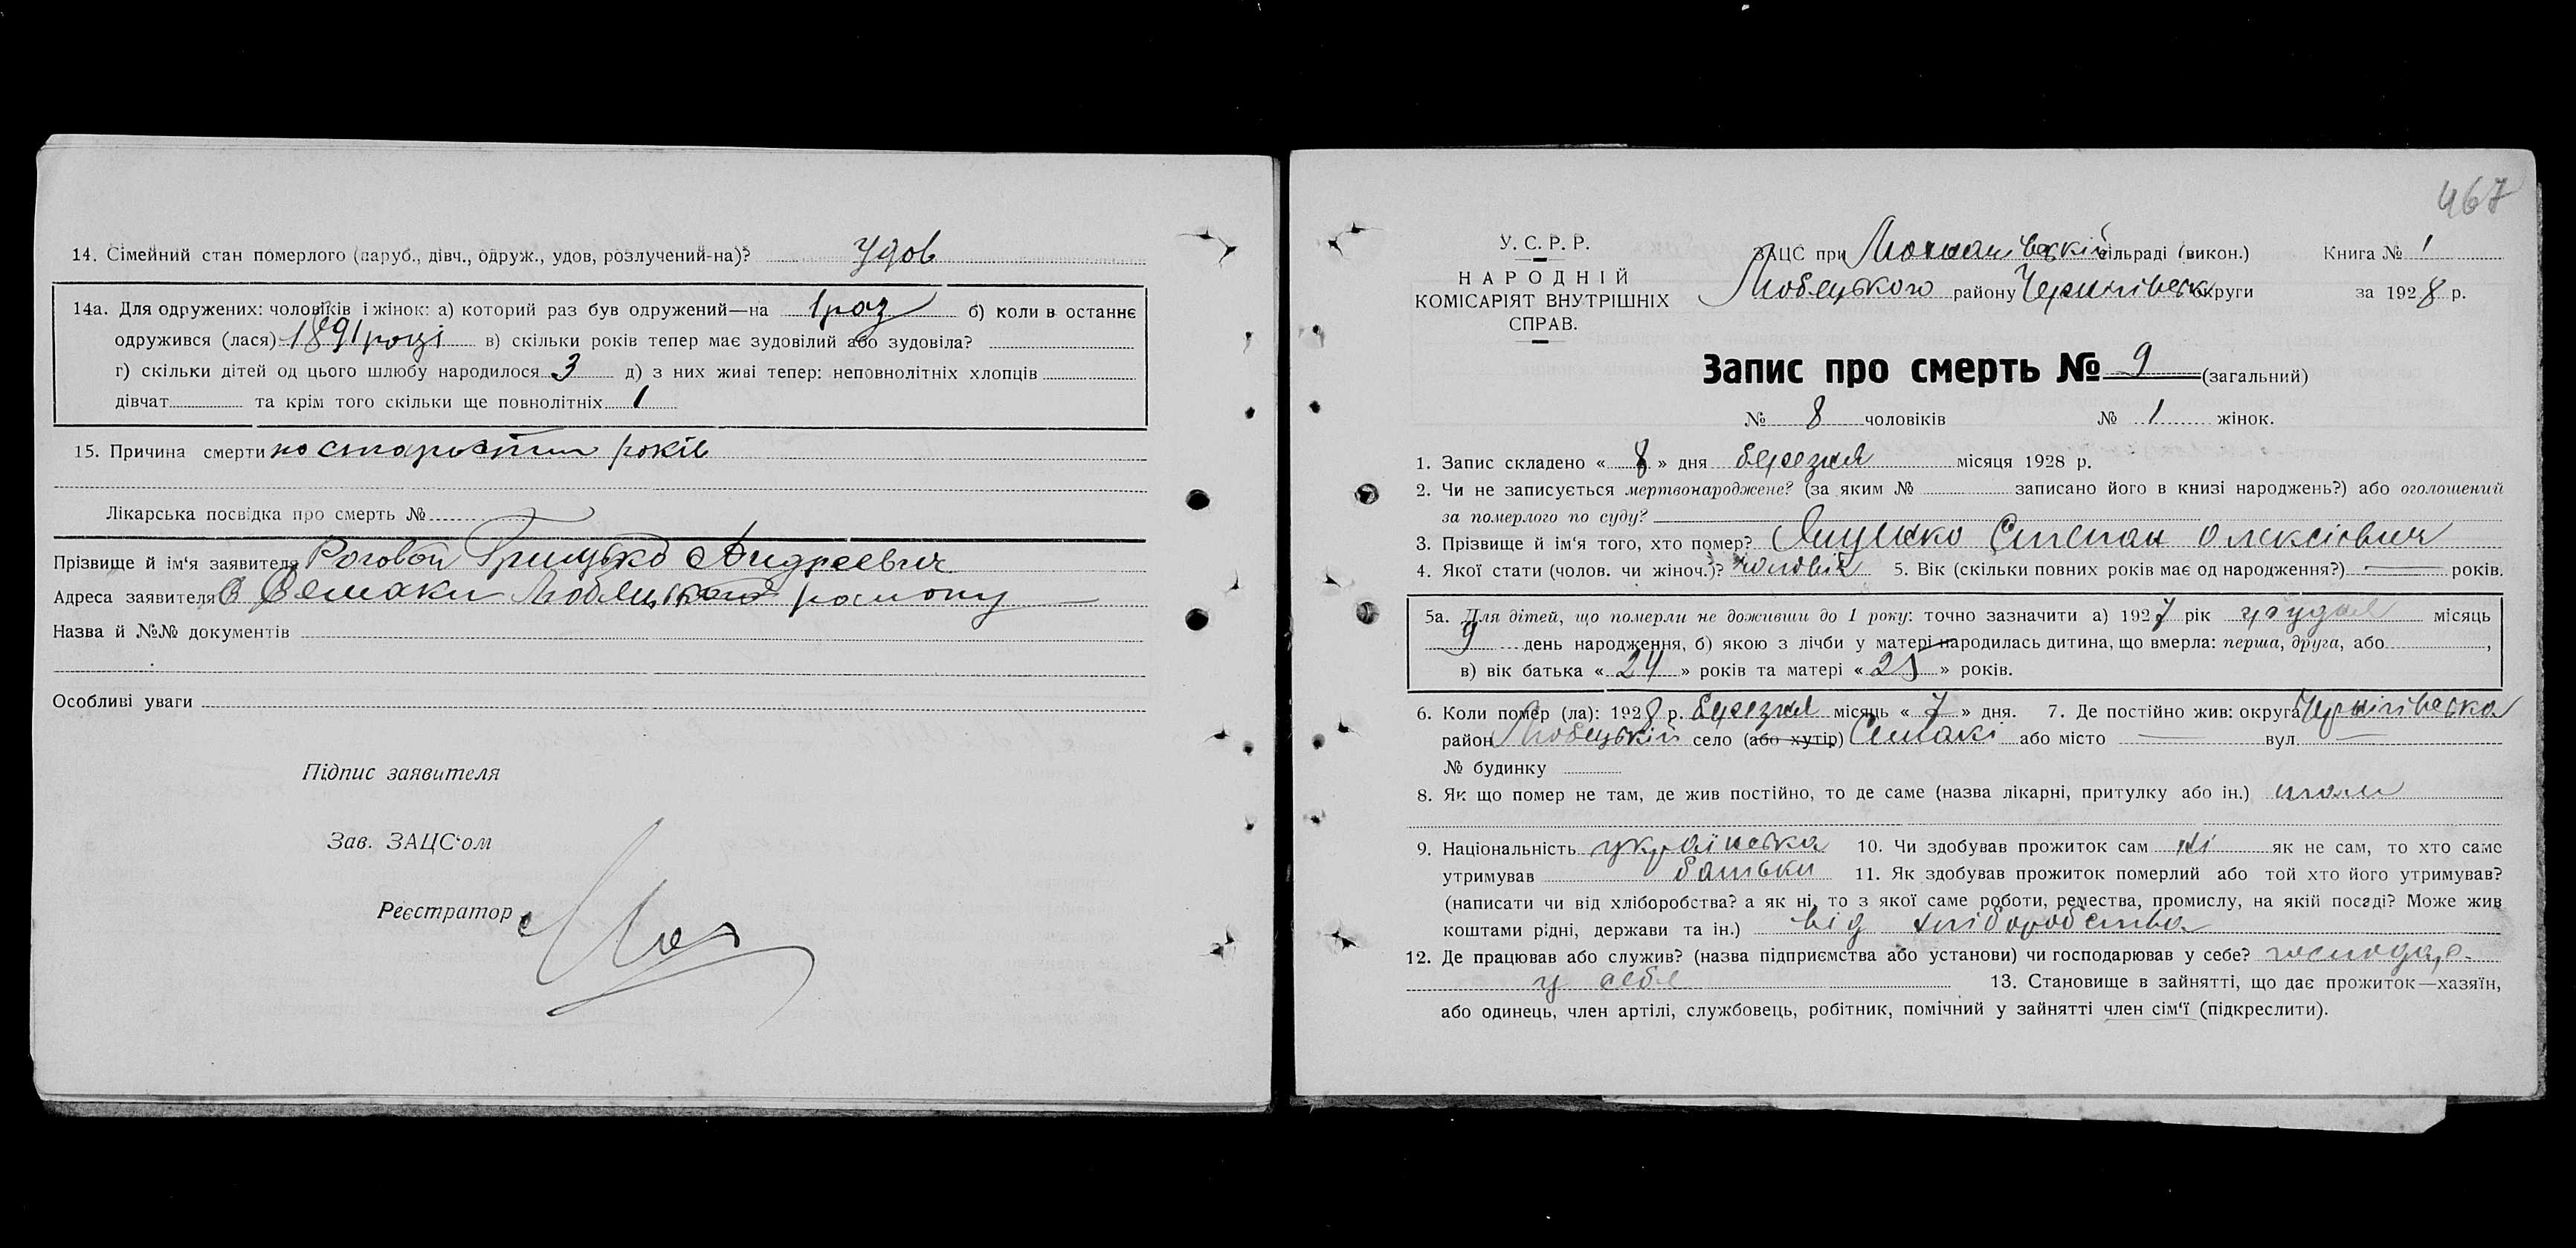 14. Сімейний стан померлого (паруб., дівч., одруж., удов, розлучений-на)? удов
14а. Для одружених: чоловіків і жінок: а) которий раз був одружений—на 1 раз б) коли в останнє
одружився (лася) 1891 році в) скільки років тепер має зудовілий або зудовіла?
г) скільки дітей од цього шлюбу народилося 3 д) з них живі тепер: неповнолітніх хлопців
дівчат та крім того скільки ще повнолітніх 1
15. Причина смерти по старости років
Лікарська посвідка про смерть №
Прізвище й ім'я заявителя Роговой Грицько Андреевич
Адреса заявителя С Семаки Любецького району
Назва й №№ документів
Особливі уваги
Підпис заявителя
Зав. ЗАЦС'ом
Реєстратор
467
У. С. Р. Р.
НАРОДНІЙ
КОМІСАРІЯТ ВНУТРІШНІХ
СПРАВ.
ЗАЦС при сільраді (викон.) Книга № 1
Любецького району Чернігівськ округи за 1928 р.
Запис про смерть № 9 (загальний)
№ 8 чоловіків № 1 жінок.
1. Запис складено « 8 » дня березня місяця 1928 р.
2. Чи не записується мертвонароджене? (за яким № записано його в книзі народжень?) або оголошений
за померлого по суду?
3. Прізвище й ім'я того, хто помер? Ященко Степан Олексієвич
4. Якої стати (чолов. чи жіноч.)? чоловік 5. Вік (скільки повних років має од народження?) — років.
5а. Для дітей, що померли не доживши до 1 року: точно зазначити а) 1927 рік грудня місяць
9 день народження, б) якою з лічби у матері народилась дитина, що вмерла: перша, друга, або ,
в) вік батька « 24 » років та матері « 25 » років.
6. Коли помер (ла): 1928 р. березня місяць « 7 » дня. 7. Де постійно жив: округа Чернігівська
район Любецький село (або хутір) Семакі або місто — вул. —
№ будинку
8. Як що помер не там, де жив постійно, то де саме (назва лікарні, притулку або ін.) там
9. Національність українська 10. Чи здобував прожиток сам ні як не сам, то хто саме
утримував батьки 11. Як здобував прожиток померлий або той хто його утримував?
(написати чи від хліборобства? а як ні, то з якої саме роботи, ремества, промислу, на якій посаді? Може жив
коштами рідні, держави та ін.) від хліборобства
12. Де працював або служив? (назва підприємства або установи) чи господарював у себе? господар.
у себе 13. Становище в зайнятті, що дає прожиток—хазяїн,
або одинець, член артілі, службовець, робітник, помічний у зайнятті член сім'ї (підкреслити).